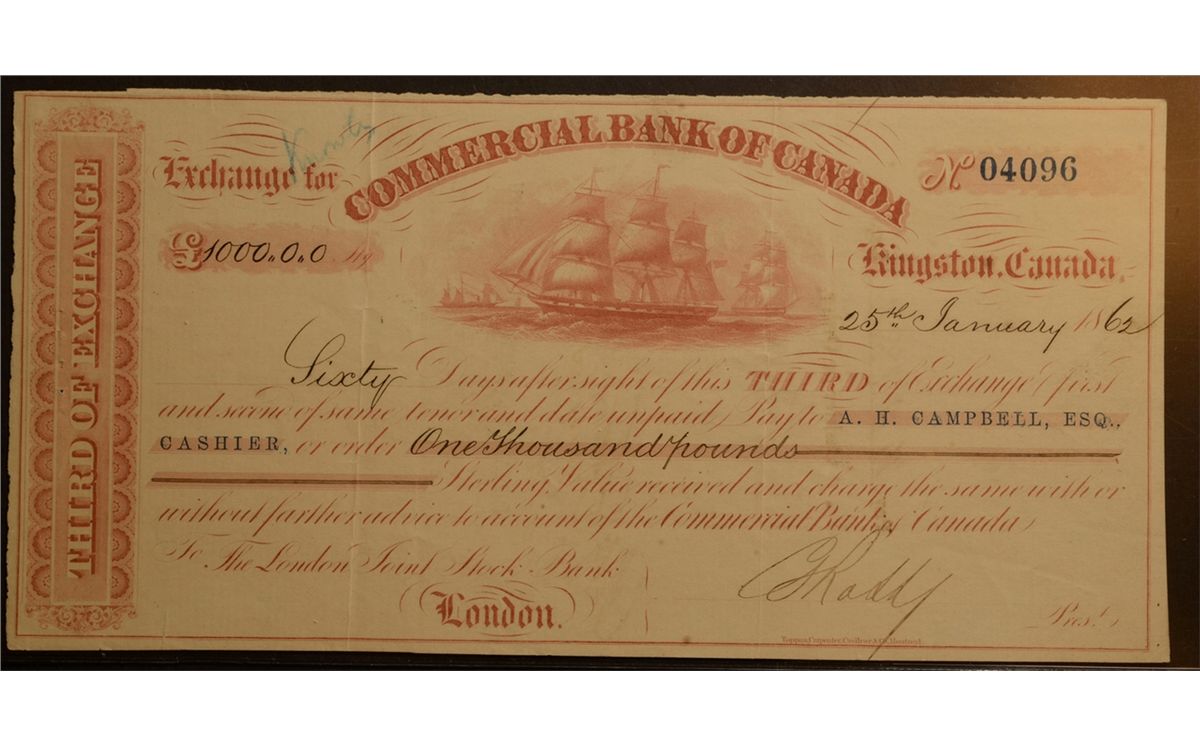 THIRD OF EXCHANGE
COMMERCIAL BANK OF CANADA
Exchange for
No 04096
£1000.0.0 Stg
Kingston, Canada,
25th January 1862
Sixty Days after sight of this THIRD of Exchange (first
and second of same tenor and date unpaid) Pay to A. H. CAMPBELL, ESQ.,
CASHIER, or order One Thousand pounds
Sterling, Value received and charge the same with or
without farther advice to account of the Commercial Bank of Canada
To The London Joint Stock Bank
London.
Prest.
Toppan, Carpenter, Casilear & Co. Montreal